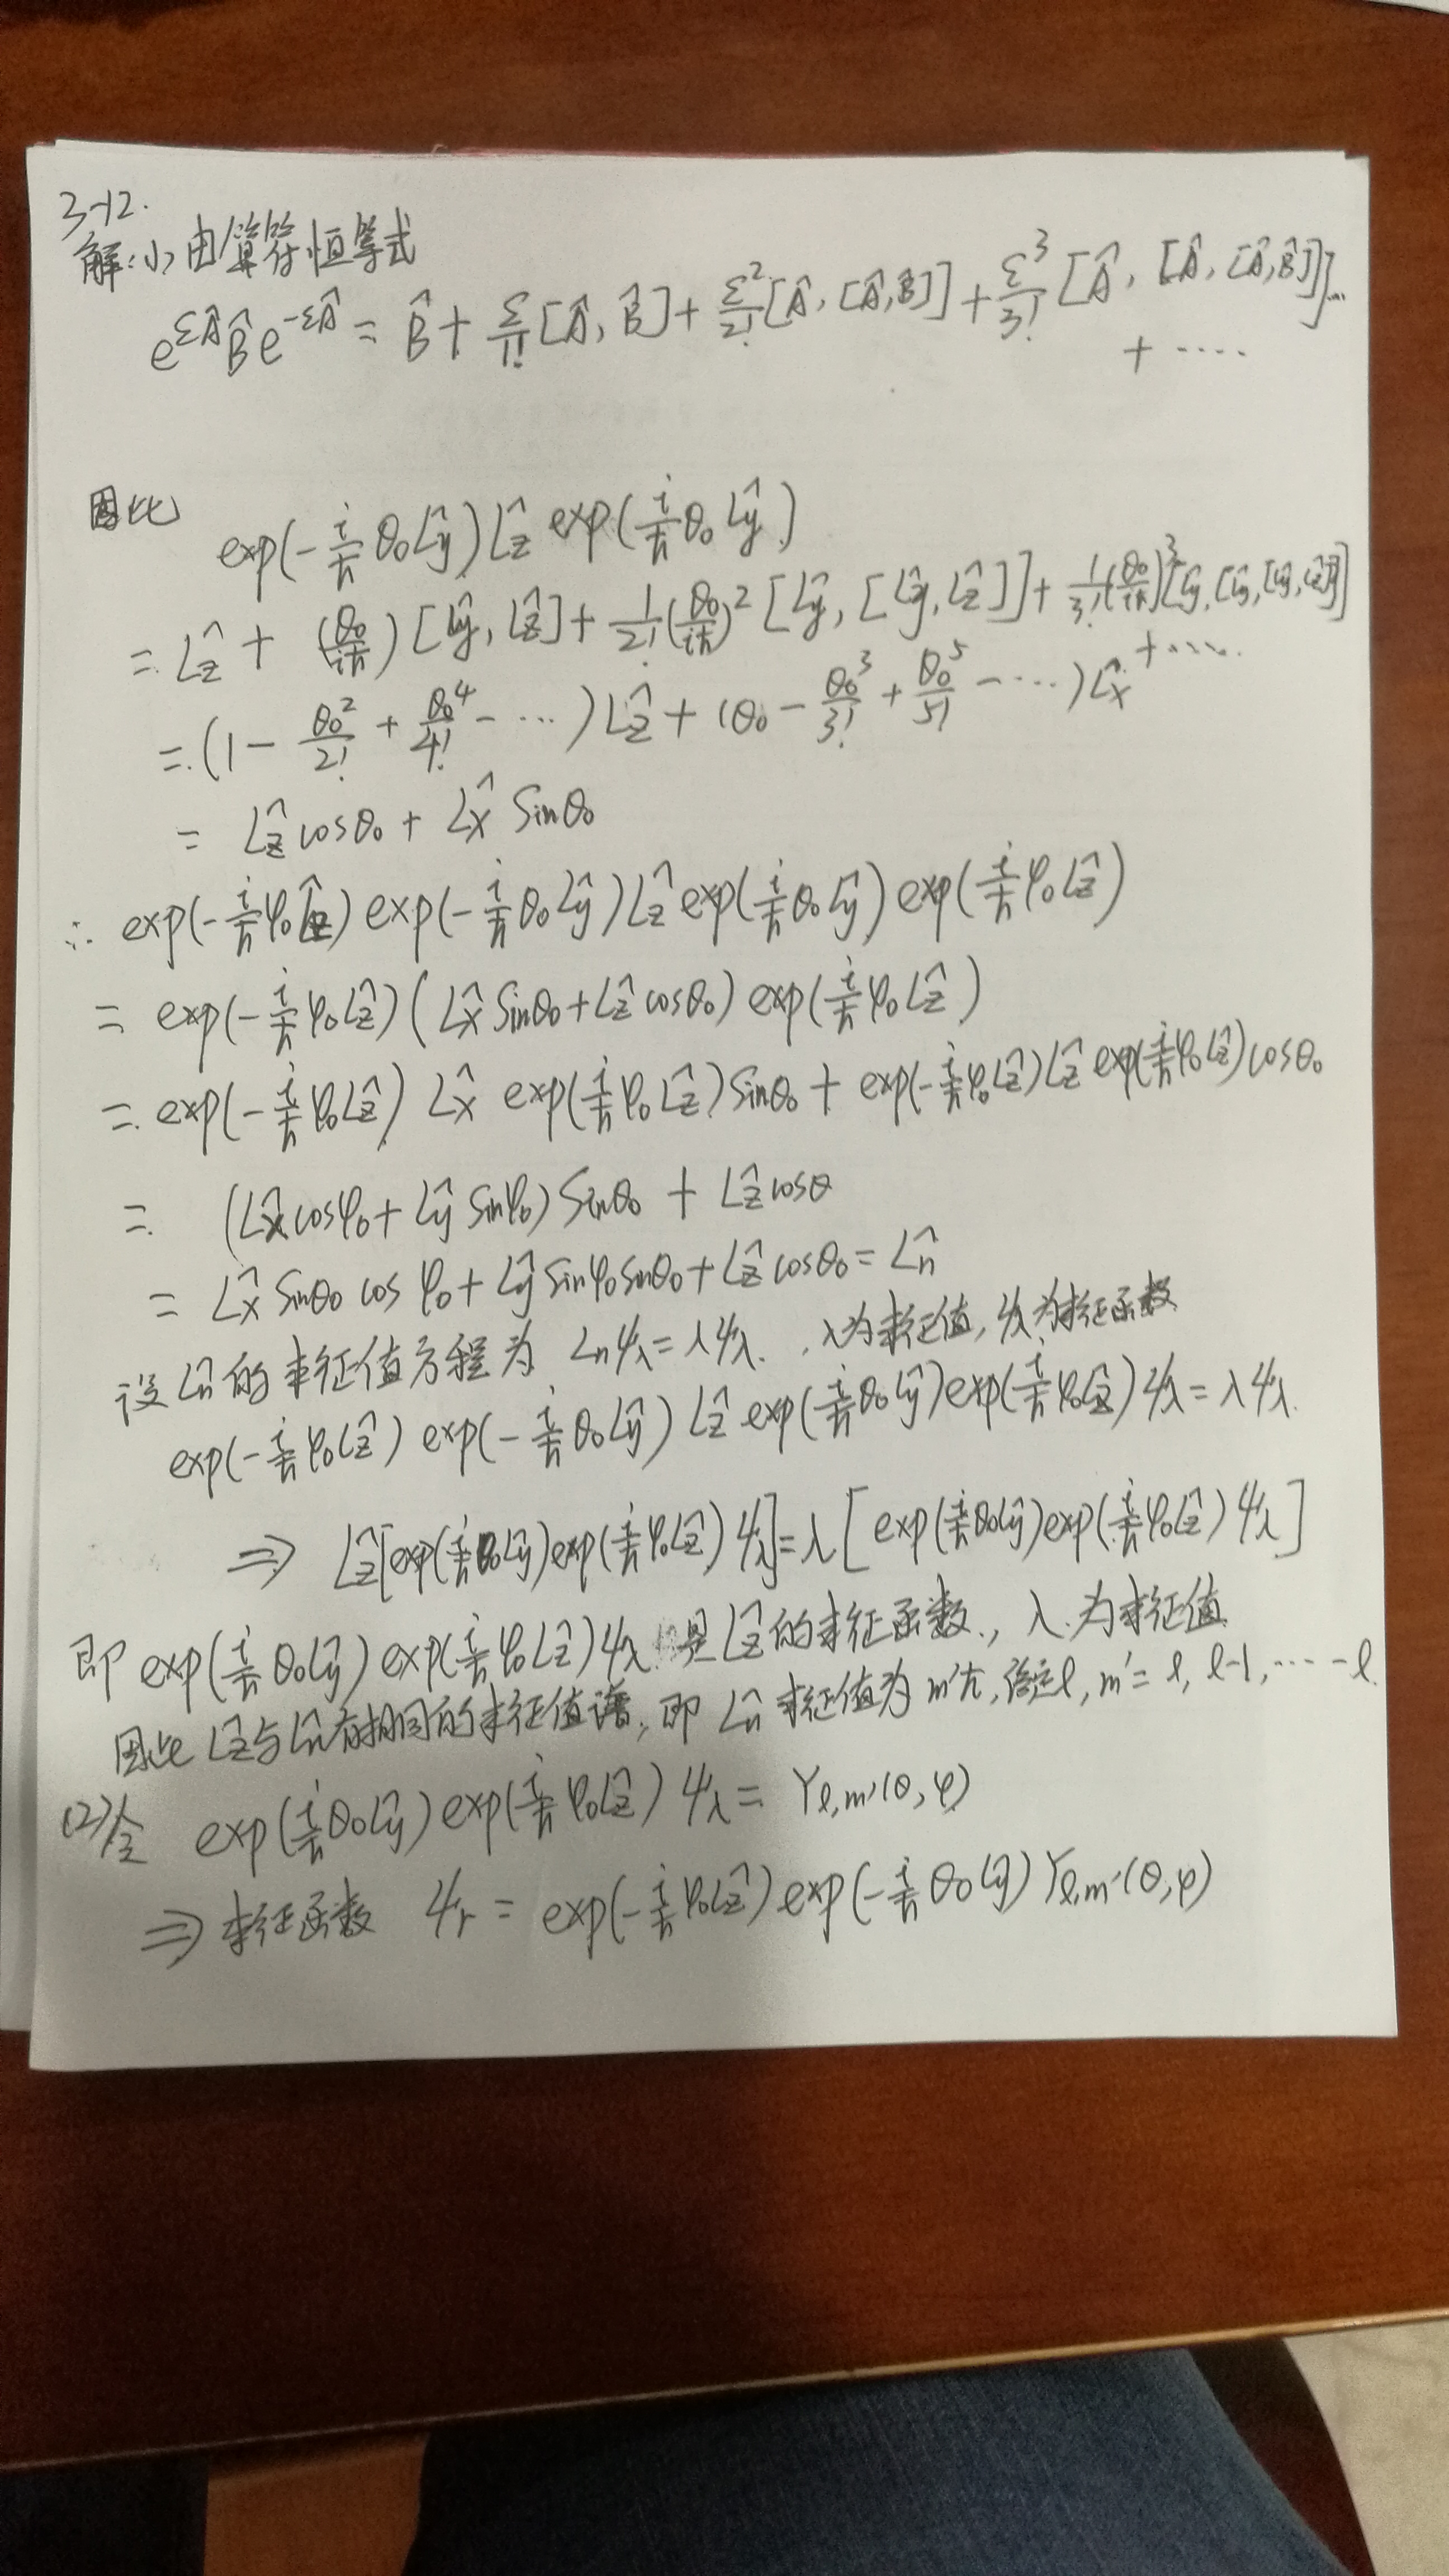 3-12.
解:(1)由算符恒等式
e^{εÂ}B̂e^{-εÂ} = B̂ + ε/1! [Â, B̂] + ε²/2! [Â, [Â, B̂]] + ε³/3! [Â, [Â, [Â, B̂]]]...
+ ....
因此
exp(-i/ħ θ₀L̂y) L̂z exp(i/ħ θ₀ L̂y)
= L̂z + (θ₀/iħ) [L̂y, L̂z] + 1/2! (θ₀/iħ)² [L̂y, [L̂y, L̂z]] + 1/3! (θ₀/iħ)³ [L̂y, [L̂y, [L̂y, L̂z]]]
+ ....
= (1 - θ₀²/2! + θ₀⁴/4! - ...) L̂z + (θ₀ - θ₀³/3! + θ₀⁵/5! - ...) L̂x
= L̂z cosθ₀ + L̂x Sinθ₀
∴ exp(-i/ħ φ₀L̂z) exp(-i/ħ θ₀L̂y) L̂z exp(i/ħ θ₀L̂y) exp(i/ħ φ₀L̂z)
= exp(-i/ħ φ₀L̂z) (L̂x Sinθ₀ + L̂z cosθ₀) exp(i/ħ φ₀L̂z)
= exp(-i/ħ φ₀L̂z) L̂x exp(i/ħ φ₀L̂z) Sinθ₀ + exp(-i/ħ φ₀L̂z) L̂z exp(i/ħ φ₀L̂z) cosθ₀
= (L̂x cosφ₀ + L̂y Sinφ₀) Sinθ₀ + L̂z cosθ
= L̂x Sinθ₀ cos φ₀ + L̂y Sinφ₀ sinθ₀ + L̂z cosθ₀ = L̂n
设 L̂n 的本征值方程为 Lnψλ = λψλ. , λ为本征值, ψλ为本征函数
exp(-i/ħ φ₀L̂z) exp(-i/ħ θ₀L̂y) L̂z exp(i/ħ θ₀L̂y) exp(i/ħ φ₀L̂z) ψλ = λψλ.
⇒ L̂z[exp(i/ħ θ₀L̂y) exp(i/ħ φ₀L̂z) ψλ] = λ [exp(i/ħ θ₀L̂y) exp(i/ħ φ₀L̂z) ψλ]
即 exp(i/ħ θ₀L̂y) exp(i/ħ φ₀L̂z) ψλ 是 L̂z 的本征函数, λ 为本征值
因此 L̂z 与 L̂n 有相同的本征值谱, 即 L̂n 本征值为 m'ħ, 给定l, m' = l, l-1, ....-l.
(2)令 exp(i/ħ θ₀L̂y) exp(i/ħ φ₀L̂z) ψλ = Yl,m'(θ, φ)
⇒ 本征函数 ψr = exp(-i/ħ φ₀L̂z) exp(-i/ħ θ₀L̂y) Yl,m'(θ, φ)